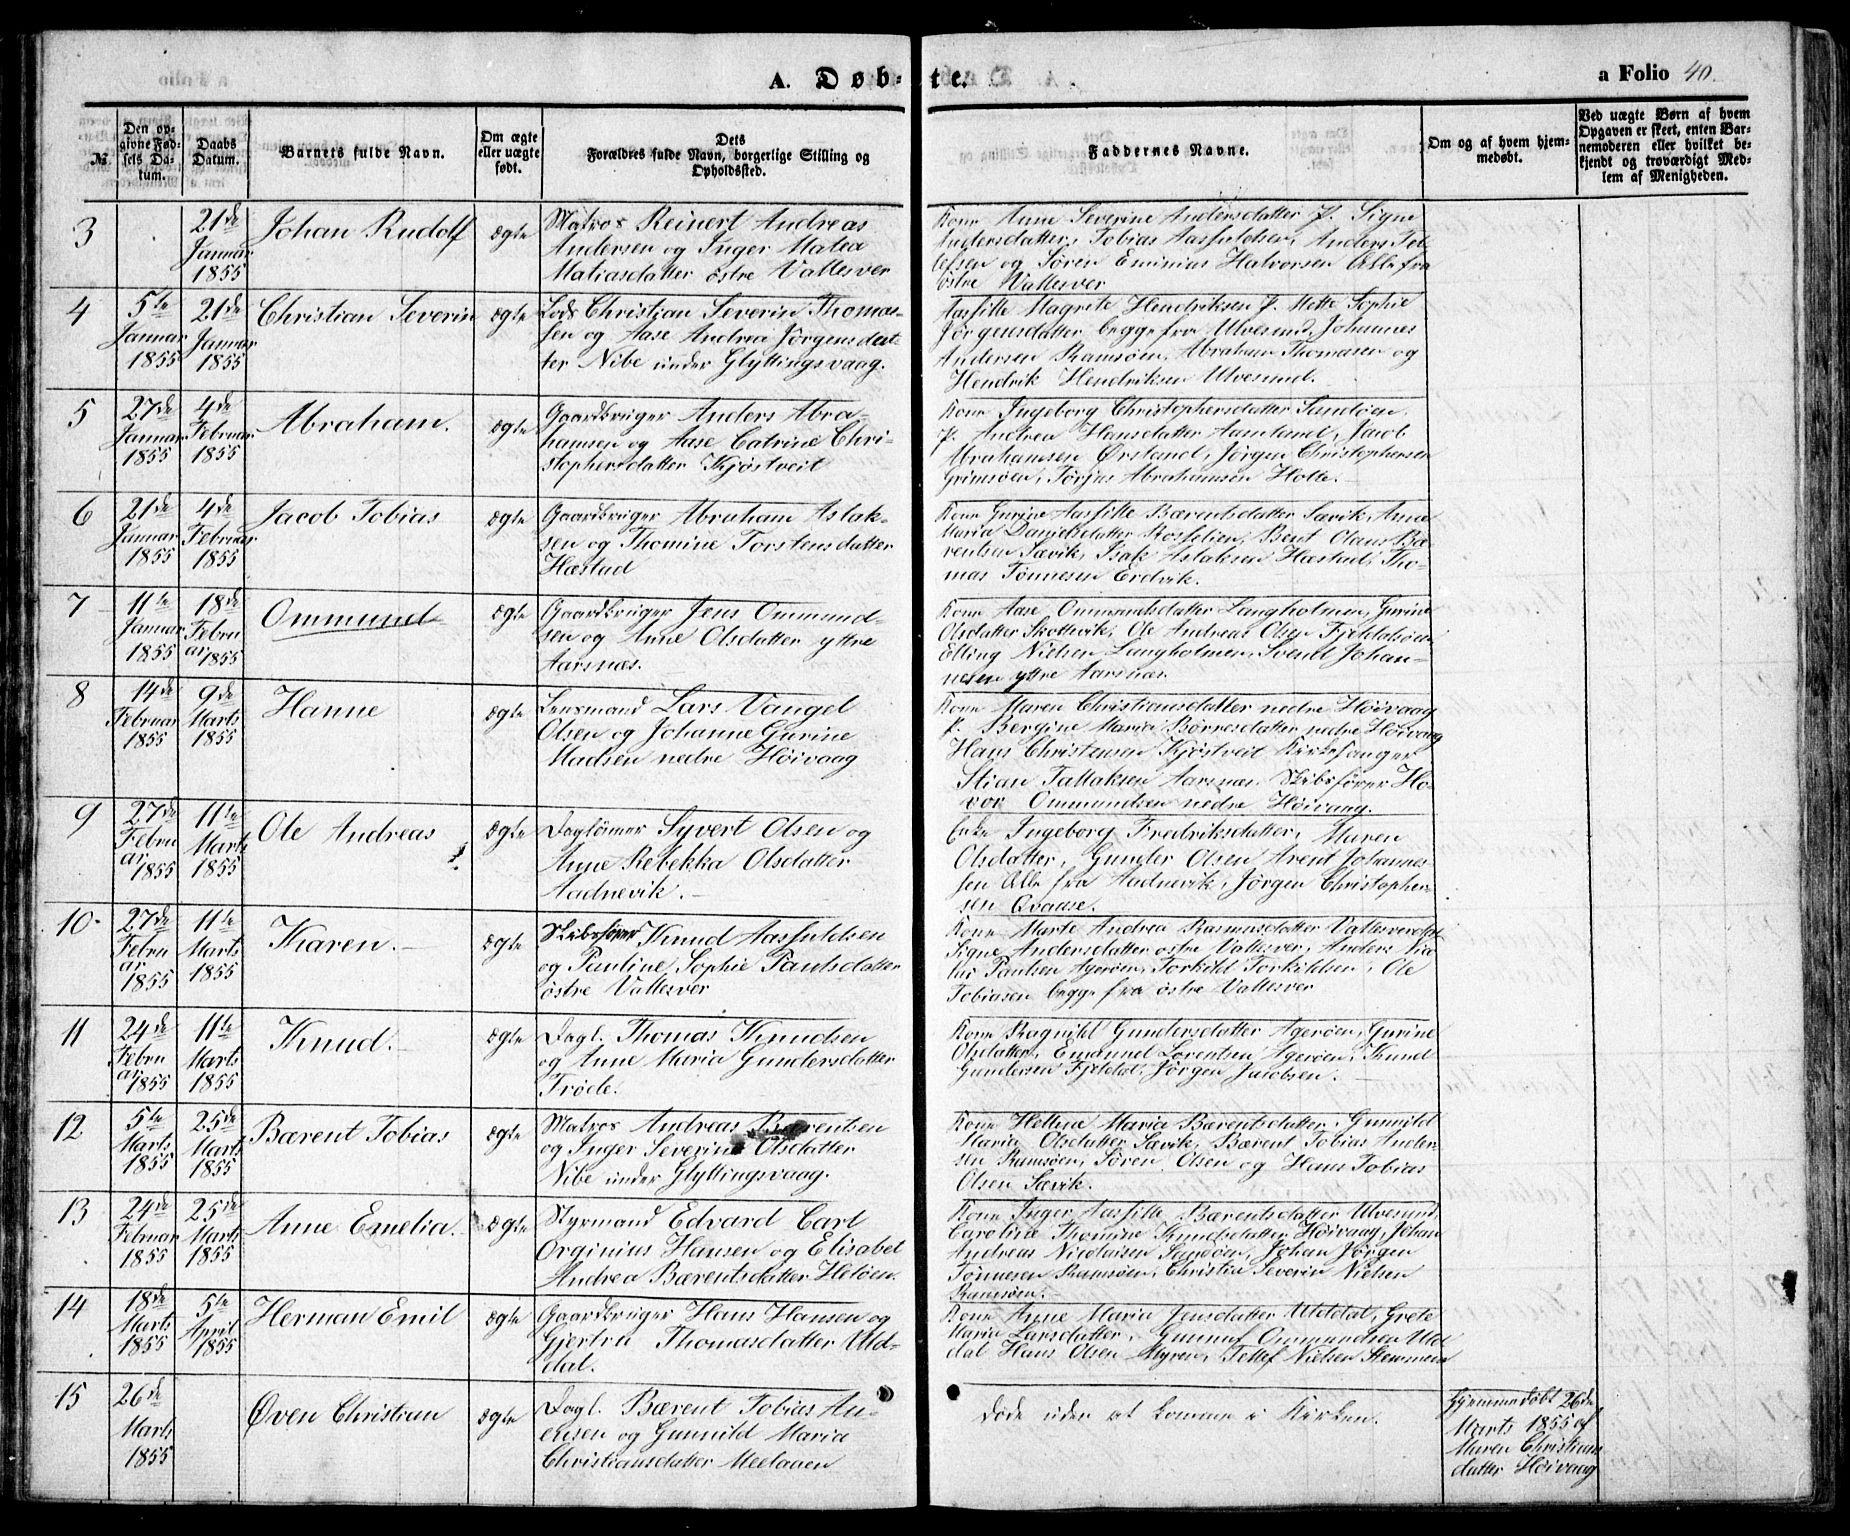 A. Døb-te.
a Folio 40.
№.
Den op-
givne Fød-
sels Da-
tum.
Daabs
Datum.
Barnets fulde Navn.
Om ægte
eller uægte
født.
Dets
Forældres fulde Navn, borgerlige Stilling og
Opholdssted.
Faddernes Navne.
Om og af hvem hjem-
medøbt.
Ved uægte Børn af hvem
Opgaven er skeet, enten Bar-
nemoderen eller hvilket be-
kjendt og troværdigt Med-
lem af Menigheden.
3
21de
Januar
1855
Johan Rudolf
ægte
Matros Reinert Andreas
Andersen og Inger Malea
Matiasdatter østre Vallesver
Kone Anne Severine Andersdatter P. Signe
Andersdatter, Tobias Aasfuldsen, Anders Tel-
lefsen og Søren Eminius Halvorsen Alle fra
østre Vallesver
4
5te
Januar
1855
21de
Januar
1855
Christian Severin
ægte
Lods Christian Severin Thomas-
sen og Aase Andrea Jørgensdat-
ter Nibe under Glyttingsvaag.
Aasille Magrete Hendriksen P. Mette Sophie
Jørgensdatter begge fra Ulvesund, Johannes
Andersen Ramsøen, Abraham Thomasen og
Hendrik Hendriksen Ulvesund.
5
27de
Januar
1855
4de
Februar
1855
Abraham.
ægte
Gaardbruger Anders Abra-
hamsen og Aase Catrine Chri-
stophersdatter Kjøstveit
Kone Ingeborg Christophersdatter Sandøen,
P. Andrea Hansdatter Aamland, Jacob
Abrahamsen Ørsland, Jørgen Christophersen
Grimsøen, Torjus Abrahamsen Holte.
6
21de
Januar
1855
4de
Februar
1855
Jacob Tobias
ægte
Gaardbruger Abraham Aslak-
sen og Thomine Torstensdatter
Hæstad
Kone Gurine Aasille Bærentsdatter Sævik, Anne
Maria Danielsdatter Rosselien, Bent Olaus Bæ-
rentsen Sævik, Isak Aslaksen Hæstad, Tho-
mas Tønnesen Erdvik.
7
11te
Januar
1855
18de
Febru
ar 1855
Ommund
ægte
Gaardbruger Jens Ommund-
sen og Anne Olsdatter yttre
Aarsnæs.
Kone Aase Ommundsdatter Langholmen, Gurine
Olsdatter Skottevik, Ole Andreas Olsen Fjeldalsøen
Elling Nielsen Langholmen, Svend Johan-
nesen yttre Aarsnæs.
8
14de
Februar
1855
9de
Marts
1855
Hanne
ægte
Lensmand Lars Vangel
Olsen og Johanne Gurine
Madsen nedre Høivaag
Kone Maren Christiansdatter nedre Høivaag
P. Bergine Maria Børresdatter nedre Høivaag
Hans Christensen Kjøstveit Kirkesanger
Stian Tallaksen Aarsnæs. Skibsfører Ho-
vor Ommundsen nedre Høivaag.
9
27de
Febru
ar
1855
11te
Marts
1855
Ole Andreas
ægte
Dagløner Syvert Olsen og
Anne Rebekka Olsdatter
Aadnevik.
Enke Ingeborg Fredriksdatter, Maren
Olsdatter, Gunder Olsen Arent Johannes-
sen Alle fra Aadnevik, Jørgen Christopher-
sen Qvaase.
10
27de
Febru
ar
1855
11te
Marts
1855
Karen.
ægte
Skibsfører Knud Aasfuldsen
og Pauline Sophie Paulsdatter
østre Vallesver
Kone Marte Andrea Rasmusdatter Vallesver
Signe Andersdatter østre Vallesver, Anders Nico
lai Paulsen Agerøen, Torkild Torkildsen, Ole
Tobiasen begge fra østre Vallesver
11
24de
Febru
ar
1855
11te
Marts
1855
Knud.
ægte
Dagl. Thomas Knudsen
og Anne Maria Gundersdatter
Trøde.
Kone Ragnild Gundersdatter Agerøen, Gurine
Olsdatter, Emanuel Lorentsen Agerøen, Knud
Gundersen Fjeldal, Jørgen Jacobsen.
12
5te
Marts
1855
25de
Marts
1855
Bærent Tobias
ægte
Matros Andreas Bærentsen
og Inger Severine Olsdatter
Nibe under Glyttingsvaag.
Kone Hellene Maria Bærentsdatter, Gunnild
Maria Olsdatter Sævik, Bærent Tobias Ander-
sen Ramsøen, Søren Olsen og Hans Tobias
Olsen Sævik.
13
24de
Februar
1855
25de
Marts
1855
Anne Emelia.
ægte
Styrmand Edvard Carl
Orginius Hansen og Elisabet
Andrea Bærentsdatter Heløen.
Kone Inger Aasille Bærentsdatter Ulvesund,
Caroline Thomine Knudsdatter Høivaag, Johan
Andreas Nicolaisen Sandøen, Johan Jørgen
Tønnesen Ramsøen, Christia Severin Nielsen
Ramsøen.
14
18de
Marts
1855
5te
April
1855
Herman Emil
ægte
Gaardbruger Hans Hansen og
Gjertru Thomasdatter Uld-
dal.
Kone Anne Maria Jensdatter Uldal, Grete
Maria Larsdatter, Gunnuf Ommundsen Uld
dal Hans Olsen Myren, Tellef Nielsen Stemmen
15
26de
Marts
1855
Øven Christian
ægte
Dagl. Bærent Tobias An-
ersen og Gunnild Maria
Christiansdatter Meelaaen
Døde uden at komme i Kirken.
Hjemmedøbt 26de
Marts 1855 af
Maren Christians
datter Høivaag